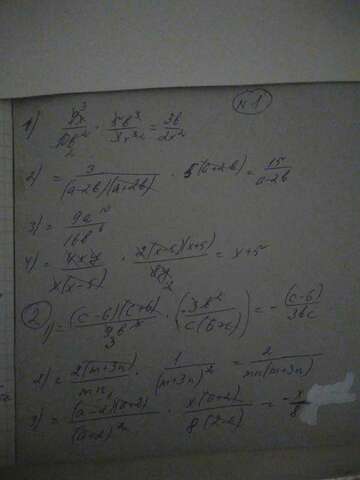 №1
1) 9x³/10b² · 5b³/3x³ = 3b/2x²
2) = 3/(a-2b)(a+2b) · 5(a+2b) = 15/a-2b
3) = 9a¹⁰/16b⁶
4) = 4xy/x(x-5) · 2(x-5)(x+5)/8y = x+5
2
1) = (c-b)(c+b)/9b² · (-3b²/c(b+c)) = -(c-b)/3bc
2) = 2(m+3n)/mn · 1/(m+3n)² = 2/mn(m+3n)
3) = (a-2)(a+2)/(a+2)² · x(a+2)/8(2-a) = -x/8